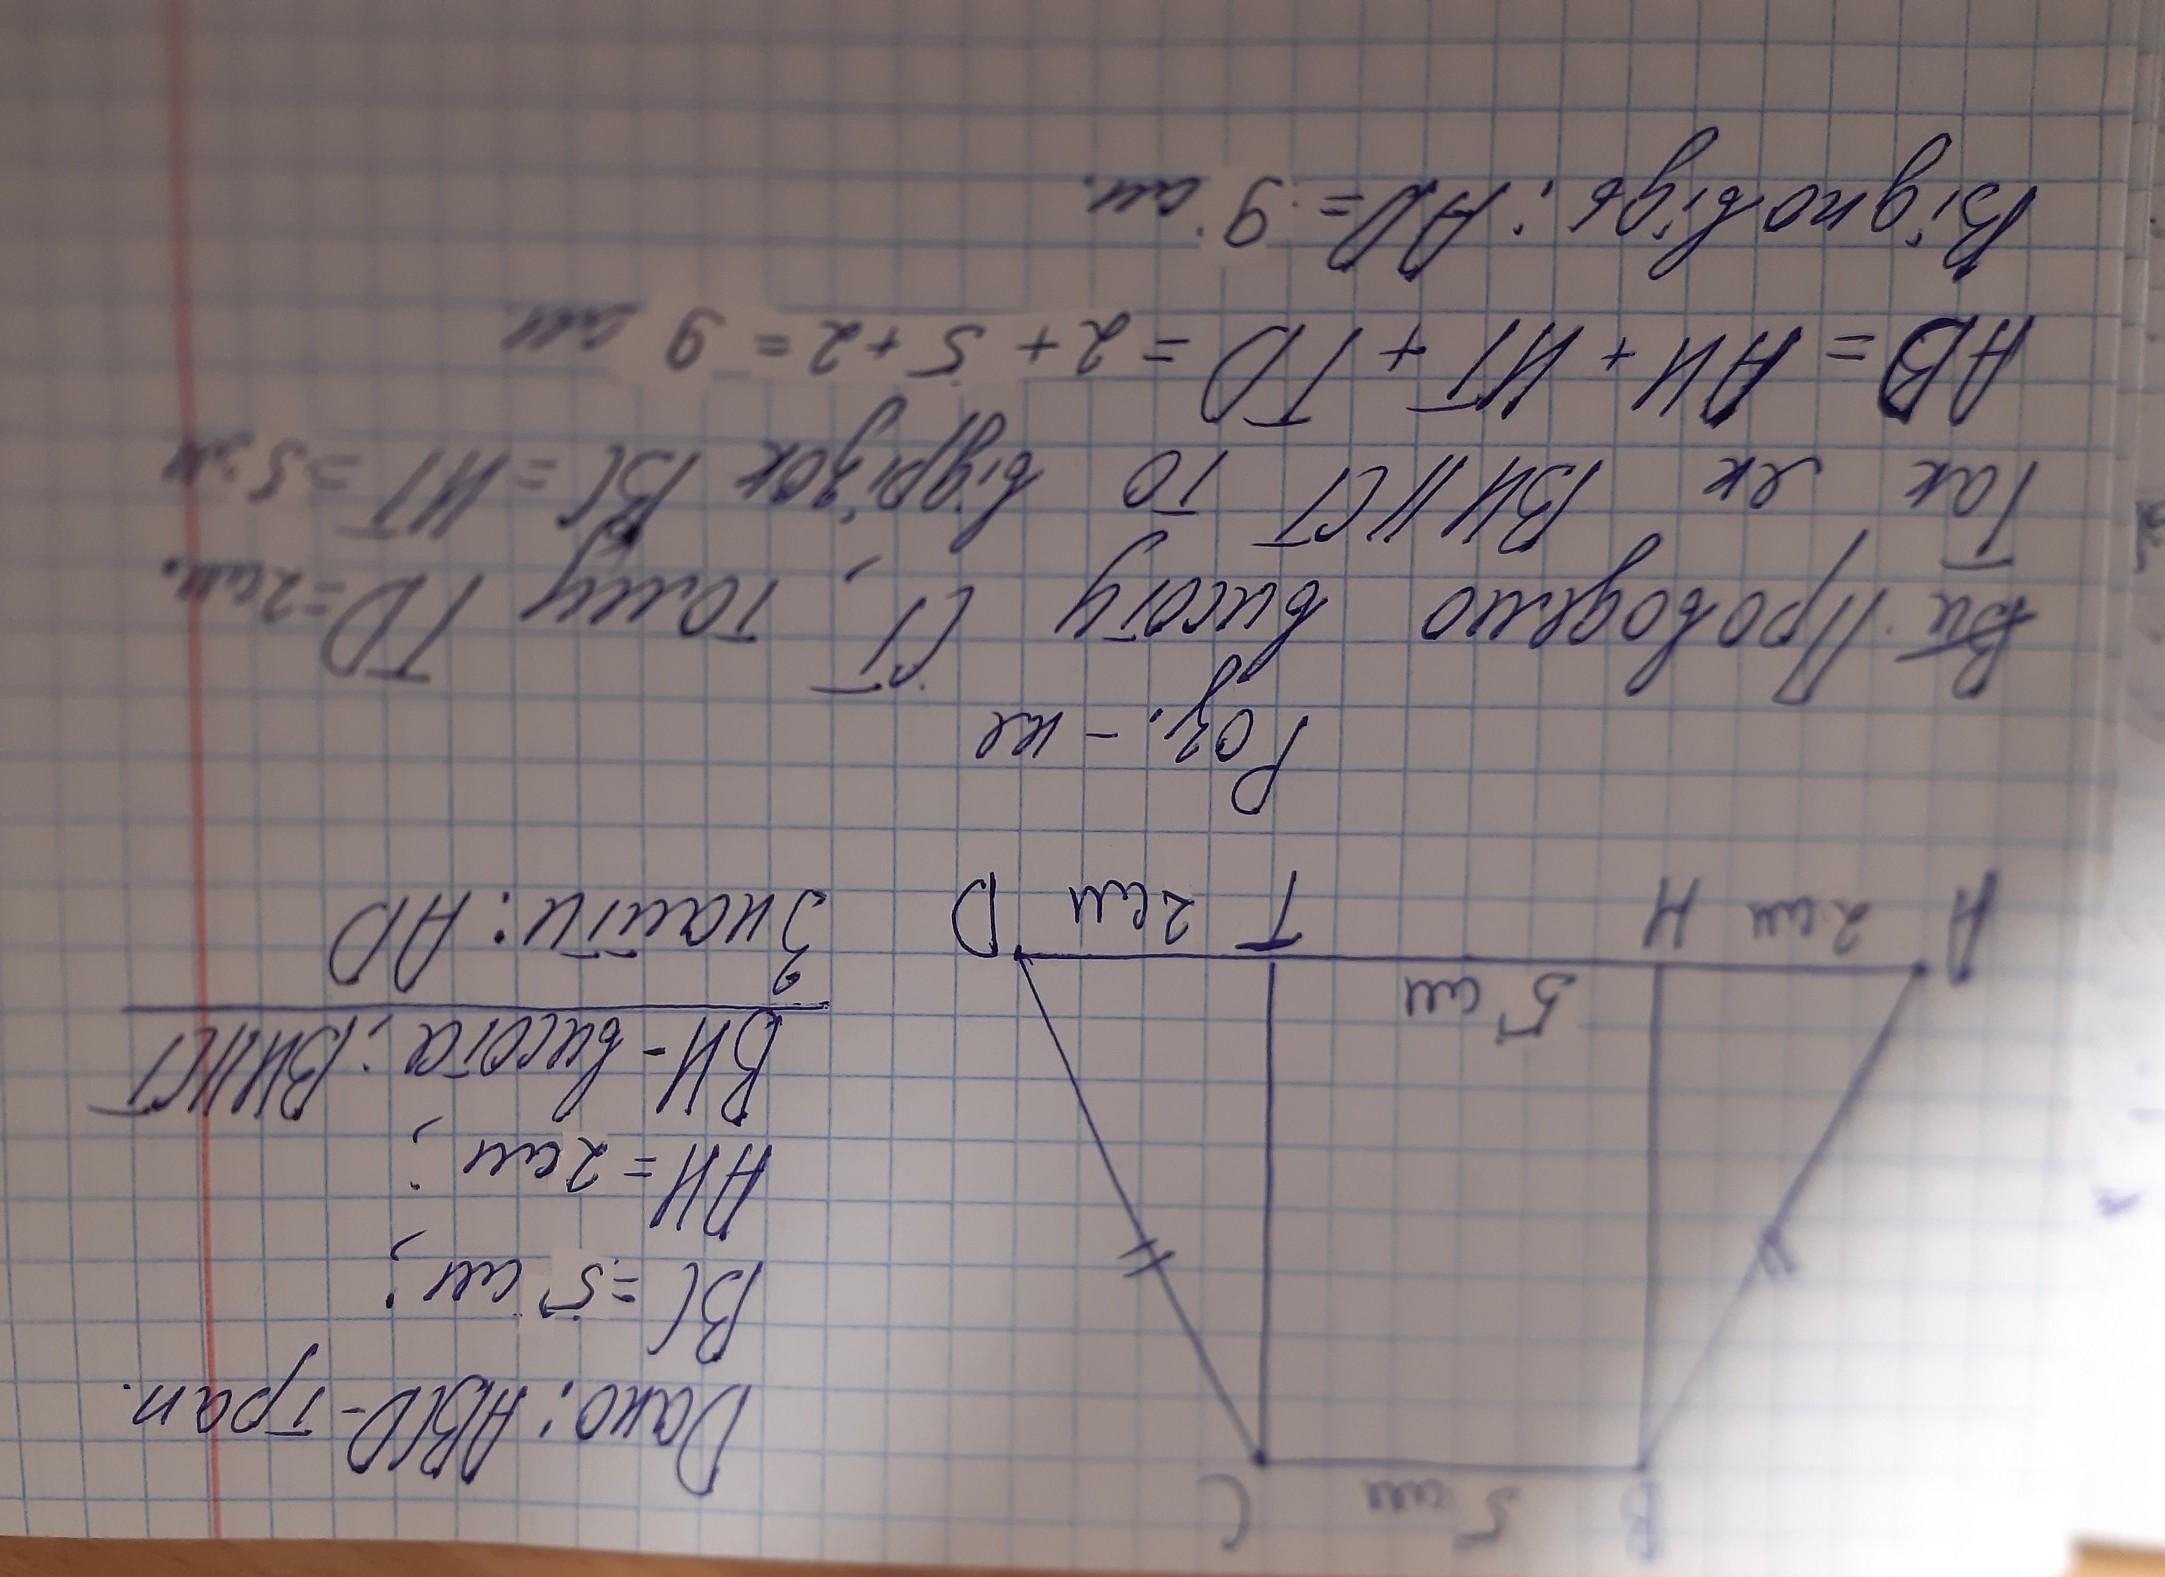 B 5 см C
Дано: ABCD-трап.
BC = 5 см;
AH = 2 см;
BH - висота; BH||CT
5 см
A 2 см H T 2 см D
Знайти: AD
Роз. - не
Проводемо висоту CT, тому TD = 2 см.
Так як BH||CT то відрізок BC = HT = 5 см
AD = AH + HT + TD = 2 + 5 + 2 = 9 см
Відповідь: AD = 9 см.